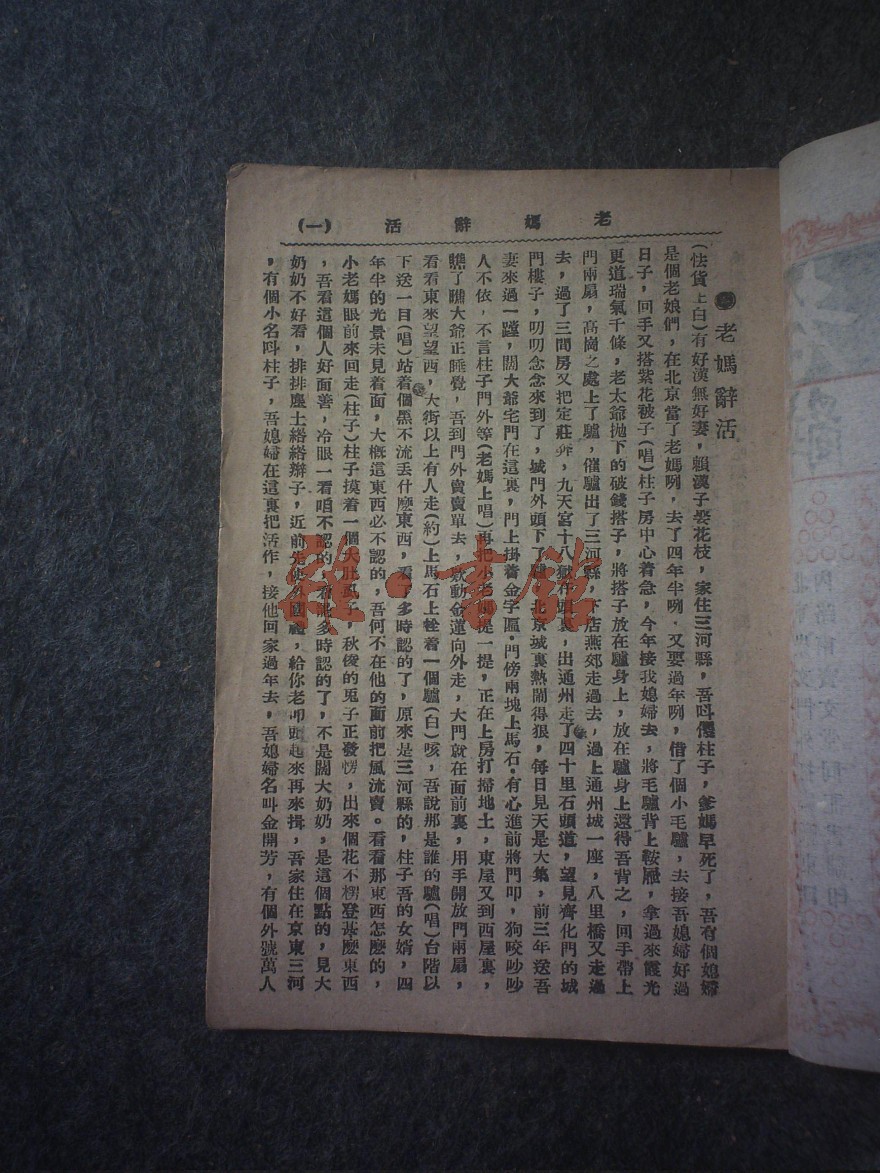 老媽辭活 (一)
老媽辭活
(怯貨上白)有好漢無好妻，賴漢子娶花枝，家住三河縣，吾呌傻柱子，爹媽早死了，吾有個媳婦
是個老娘們，在北京當了老媽咧，去了四年半咧，又要過年咧，借了個小毛驢，去接吾媳婦好過
日子，回手又搭紫花被子(唱)柱子房中心着急，今年接我媳婦去，將毛驢背上鞍屜，拿過來霞光
更道瑞氣千條，老太爺拋下的破錢搭子，將搭子放在驢身上，放在驢身上還得吾背之，回手帶上
門兩扇，高崗之處上了驢，催驢出了三河縣，下店燕郊走過去，過上通州城一座，八里橋又走過
去，過了三間房又把定莊奔，九天宮十八獄在頭裏，出通州走了四十里石頭道，望見齊化門的城
門樓子，叨叨念念來到了，城門外頭下了驢，北京城裏熱鬧得狠，每日見天是大集，前三年送吾
妻來過一蹚，闊大爺宅門在這裏，門上掛着金字匾，門傍兩塊上馬石。有心進前將門叩，狗咬吵吵
人不依，不言柱子門外等(老媽上唱)再把小老媽提一提，正在上房打掃地土，東屋又到西屋裏，
瞧了瞧大爺正睡覺，吾到門外賣賣單去，欵動金蓮向外走，大門就在面前裏，用手開放門兩扇，
看看東來望望西，大街以上有人走(約)上馬石上栓着一個驢(白)咳，吾說那是誰的驢(唱)台階以
下送一目(唱)站着個黑不流丢什麼東西，看了多時認的了，原來是三河縣的，柱子吾的女婿，四
年半的光景未見着面，大槪這東西必不認的，吾何不在他的面前把風流賣。看看那東西怎麼的，
小老媽眼前來回走(柱子)柱子摸着一個大肚虱子，秋後的兎子正發愣，出來個花不楞登甚麼東西
，吾看這個人好面善，冷眼一看咱不認的，看罷多時認的了，不是闊大奶奶，是這個點的，見大
奶奶不好看，排排塵土綹綹辮子，近前先使外國禮，給你老叩頭起來再來揖，吾家住在京東三河
，有個小名呌柱子，吾媳婦在這裏把活作，接他回家過年去，吾媳婦名叫金開芳，有個外號萬人
雜·書館